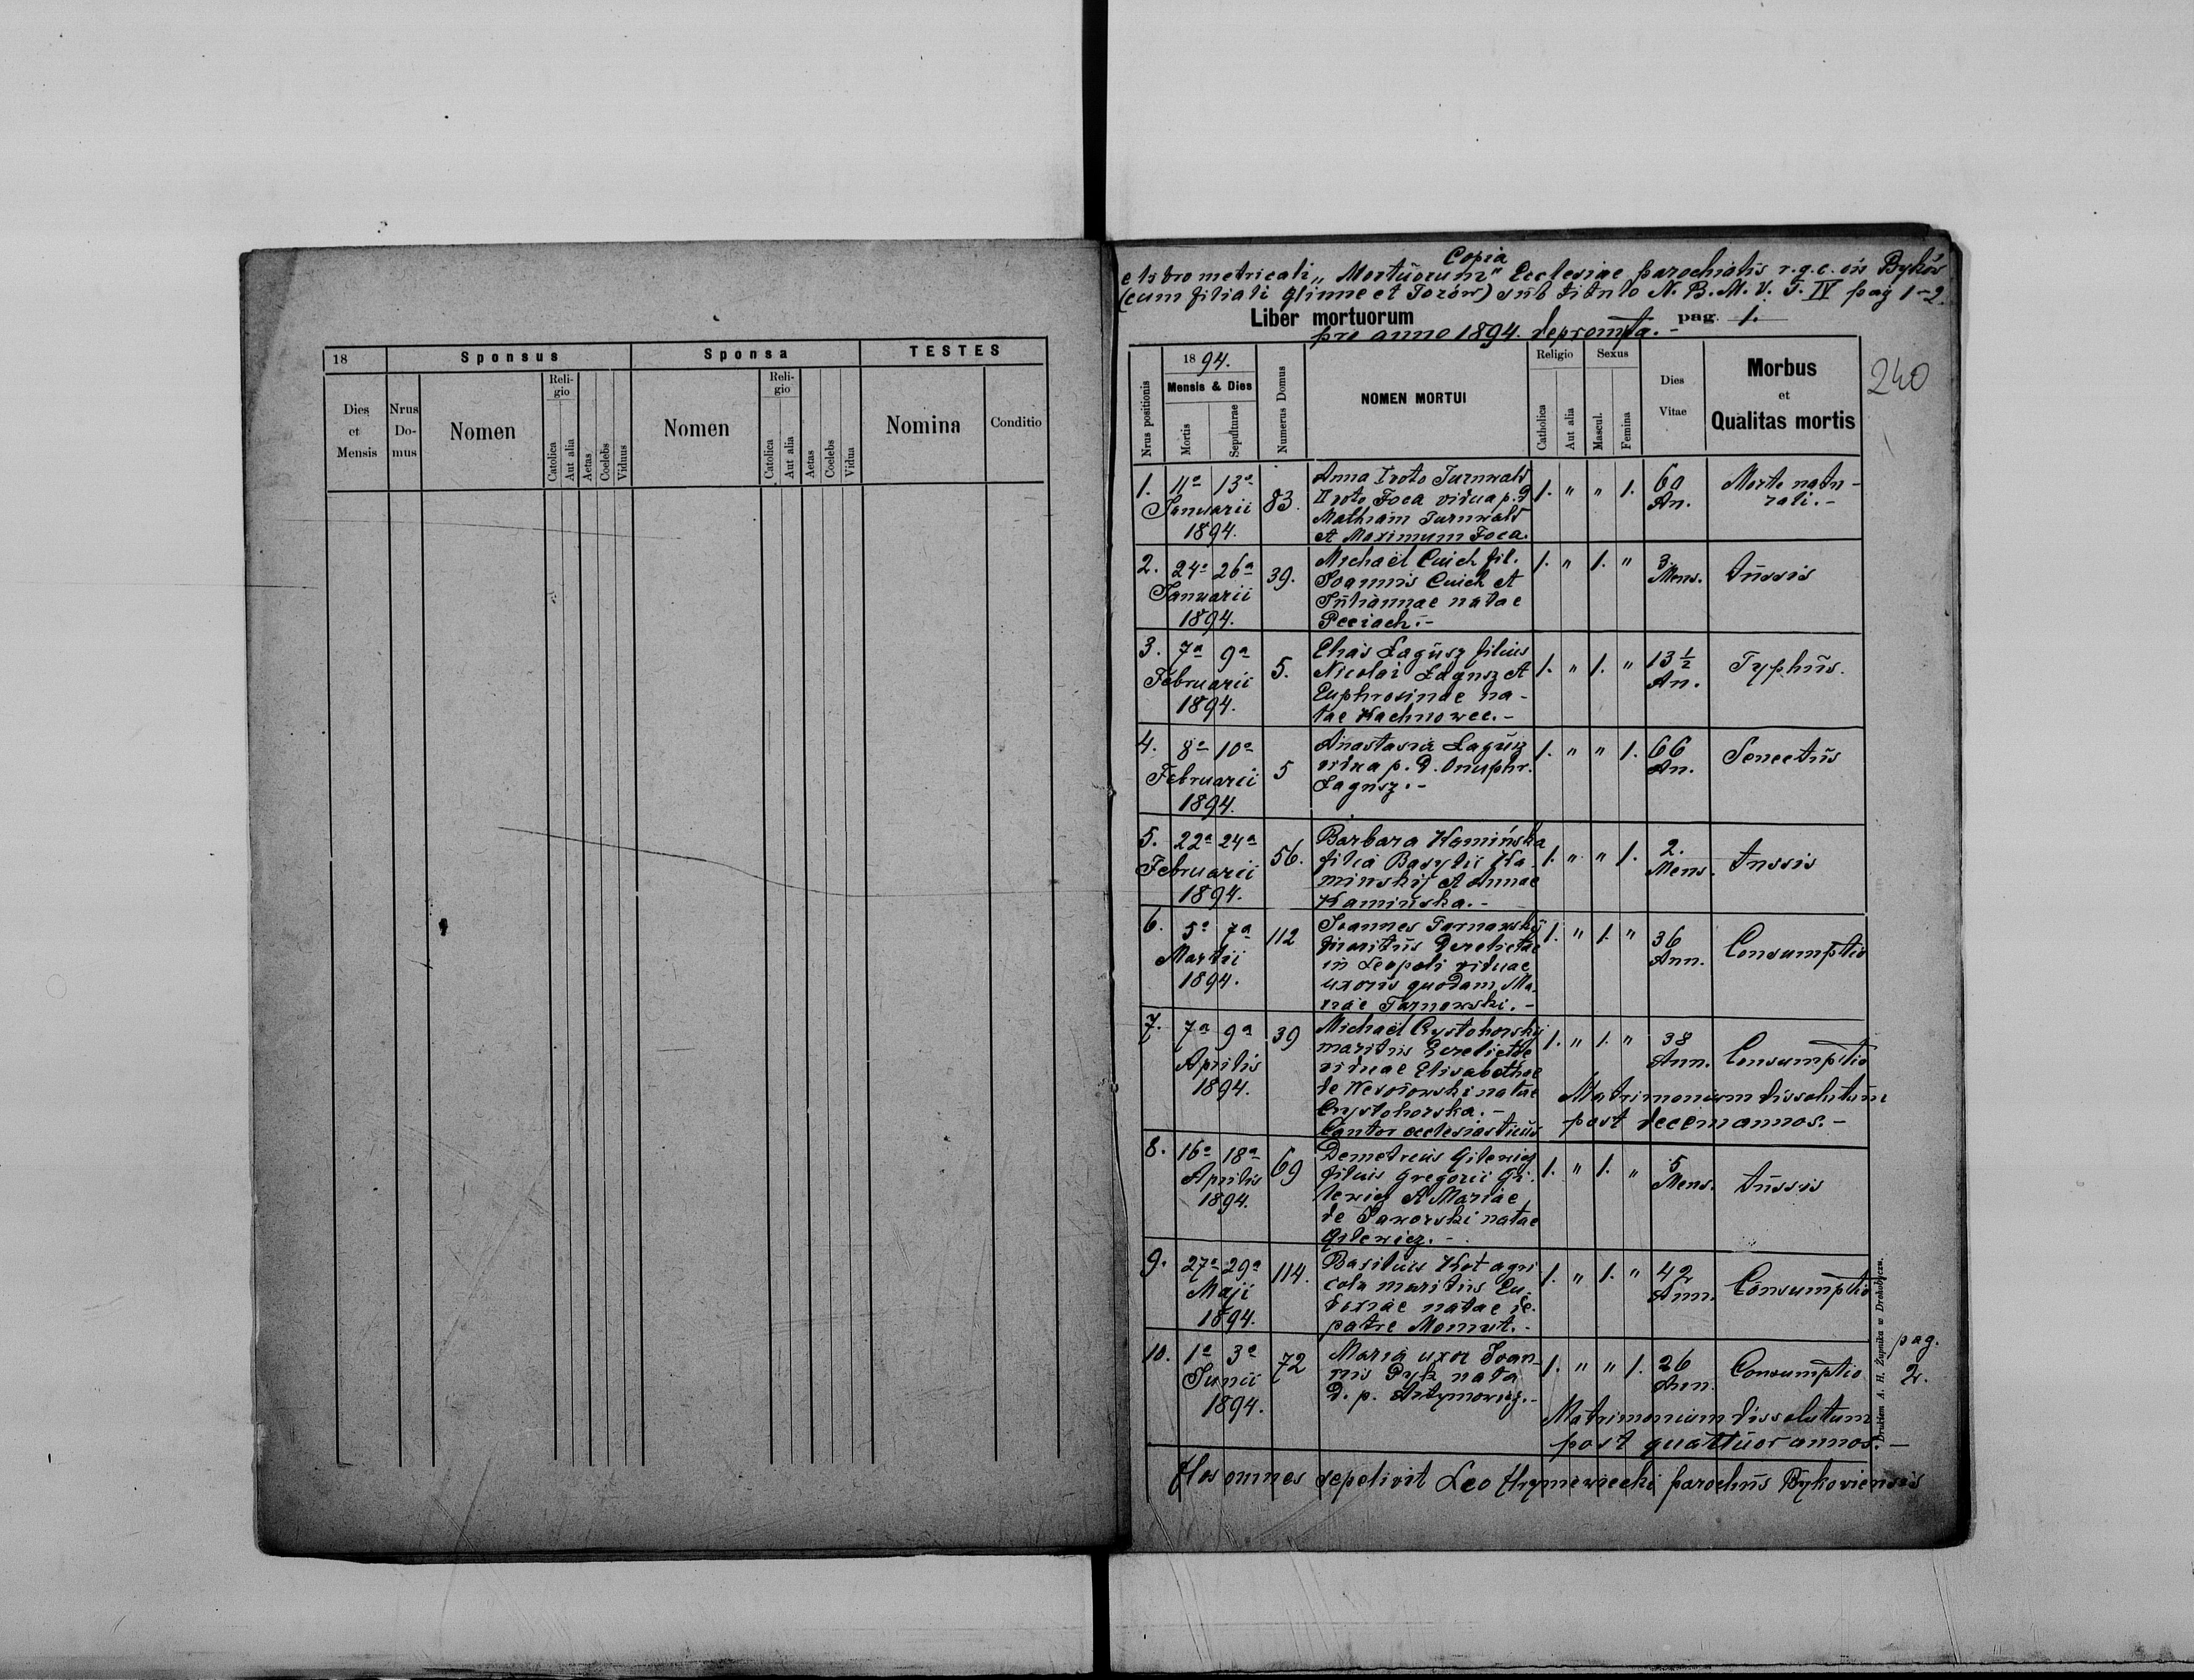 18
Sponsus
Sponsa
TESTES
Dies et Mensis
Nrus Domus
Nomen
Religio
Catolica
Aut alia
Aetas
Coelebs
Viduus
Nomen
Religio
Catolica
Aut alia
Aetas
Coelebs
Vidua
Nomina
Conditio
Copia
e libro metricali „Mortuorum" Ecclesiae parochialis r.g.c. in Byków
(cum filiali Glinne et Tozów) sub titulo N. B. M. V. T. IV pag 1-2.
Liber mortuorum pag. 1.
pro anno 1894. deprompta.-
240
Nrus positionis
1894.
Mensis & Dies
Mortis
Sepulturae
Numerus Domus
NOMEN MORTUI
Religio
Catholica
Aut alia
Sexus
Mascul.
Femina
Dies Vitae
Morbus
et
Qualitas mortis
1. 11a 13a Januarii 1894. 83.
Anna I voto Turnwald
II voto Foca vidua p. d
Mathiam Turnwald
et Maximum Foca.
1. " " 1. 60 An. Morte naturali.-
2. 24a 26a Januarii 1894. 39.
Michaël Cuich fil.
Joannis Cuich et
Juliannae natae
Peciach.-
1. " 1. " 3. Mens. tussis
3. 7a 9a Februarii 1894. 5.
Elias Łagusz filius
Nicolai Łagusz et
Euphrosinae na-
tae Hachnowec.-
1. " 1. " 13 ½ An. Typhus.
4. 8a 10a Februarii 1894. 5
Anastasia Łagusz
vidua p. d. Onuphr.
Łagusz.-
1. " " 1. 66 An. Senectus
5. 22a 24a Februarii 1894. 56.
Barbara Kamińska
filia Basylii Ka-
minskij et Annae
Kamińska.-
1. " " 1. 2. Mens. tussis
6. 5a 7a Martii 1894. 112
Joannes Tarnawskij
maritus derelictae
in Leopoli viduae
uxoris quodam Ma-
riae Tarnowski.-
1. " 1. " 36 Ann. Consumptio
7. 7a 9a Aprilis 1894. 39
Michaël Czystohorskij
maritus derelictae
viduae Elisabethae
de Wesołowski natae
Czystohorska.-
Cantor ecclesiasticus
1. " 1. " 38 Ann. Consumptio
Matrimonium dissolutum
post decem annos.-
8. 16a 18a Aprilis 1894. 69
Demetrius Gilewicz
filius Gregorii Gi-
lewicz et Mariae
de Jaworski natae
Gilewicz.-
1. " 1. " 5 Mens. tussis
9. 27a 29a Maji 1894. 114.
Basilius Kot agri-
cola maritus Eu-
doxiae natae de
patre Momut.-
1. " 1. " 42 Ann. Consumptio
10. 1a 3a Junii 1894. 72
Maria uxor Joan-
nis Pyk nata
d. p. Artymowicz.-
1. " " 1. 26 Ann. Consumptio
Matrimonium dissolutum
post quattuor annos.-
pag. 2.
Drukiem A. H. Żupnika w Drohobyczu.
Hos omnes sepelivit Leo parochus Bykoviensis